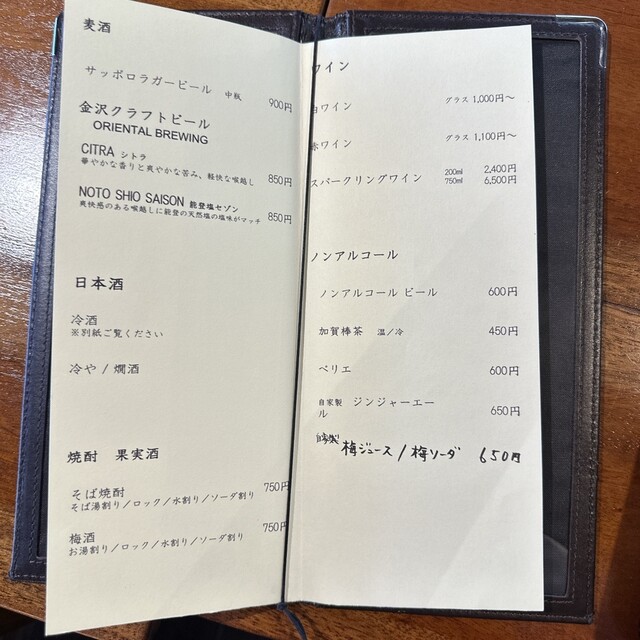 麦酒
サッポロラガービール 中瓶 900円
金沢クラフトビール
ORIENTAL BREWING
CITRA シトラ
華やかな香りと爽やかな苦み、軽快な喉越し 850円
NOTO SHIO SAISON 能登塩セゾン
爽快感のある喉越しに能登の天然塩の塩味がマッチ 850円
日本酒
冷酒
※別紙ご覧ください
冷や / 燗酒
焼酎 果実酒
そば焼酎 750円
そば湯割り/ロック/水割り/ソーダ割り
梅酒 750円
お湯割り/ロック/水割り/ソーダ割り
ワイン
白ワイン グラス 1,000円〜
赤ワイン グラス 1,100円〜
スパークリングワイン 200ml 2,400円
750ml 6,500円
ノンアルコール
ノンアルコール ビール 600円
加賀棒茶 温/冷 450円
ペリエ 600円
自家製 ジンジャーエール 650円
自家製 梅ジュース / 梅ソーダ 650円